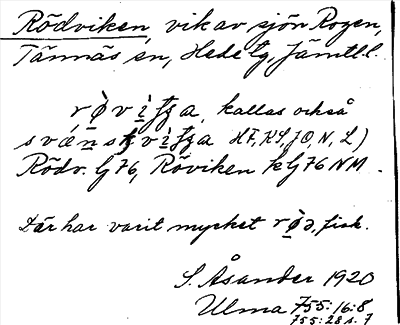 Rödviken, vik av sjön Rogen,
Tännäs sn, Hede tg, Jämtl. l.
kallas också
HF, KS, JO, N, L)
Rödv. Gj 76, Röviken k Gj 76 NM.
Där har varit mycket fisk.
S. Åsander 1920
Ulma 755:16:8
755:28 s. 7